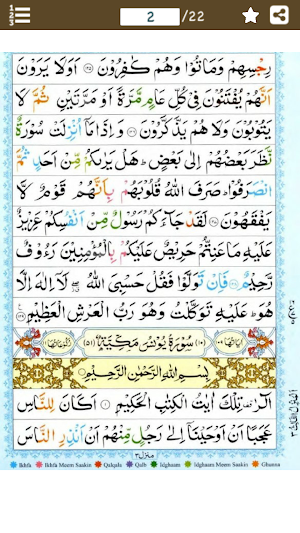 2 /22
رِجْسِهِمْ وَمَاتُوْا وَهُمْ كٰفِرُوْنَ ۝۱۲۵ اَوَلَا يَرَوْنَ
اَنَّهُمْ يُفْتَنُوْنَ فِىْ كُلِّ عَامٍ مَّرَّةً اَوْ مَرَّتَيْنِ ثُمَّ لَا
يَتُوْبُوْنَ وَلَا هُمْ يَذَّكَّرُوْنَ ۝۱۲۶ وَاِذَا مَاۤ اُنْزِلَتْ سُوْرَةٌ
نَّظَرَ بَعْضُهُمْ اِلٰى بَعْضٍ ؕ هَلْ يَرٰىكُمْ مِّنْ اَحَدٍ ثُمَّ
انْصَرَفُوْا ؕ صَرَفَ اللّٰهُ قُلُوْبَهُمْ بِاَنَّهُمْ قَوْمٌ لَّا
يَفْقَهُوْنَ ۝۱۲۷ لَقَدْ جَآءَكُمْ رَسُوْلٌ مِّنْ اَنْفُسِكُمْ عَزِيْزٌ
عَلَيْهِ مَا عَنِتُّمْ حَرِيْصٌ عَلَيْكُمْ بِالْمُؤْمِنِيْنَ رَءُوْفٌ
رَّحِيْمٌ ۝۱۲۸ فَاِنْ تَوَلَّوْا فَقُلْ حَسْبِىَ اللّٰهُ ۖ لَاۤ اِلٰهَ اِلَّا
هُوَ ؕ عَلَيْهِ تَوَكَّلْتُ وَهُوَ رَبُّ الْعَرْشِ الْعَظِيْمِ ۝۱۲۹
(۱۰) سُوْرَةُ يُوْنُسَ مَكِّيَّةٌ (۵۱)
بِسْمِ اللّٰهِ الرَّحْمٰنِ الرَّحِيْمِ
الٓرٰ ۟ تِلْكَ اٰيٰتُ الْكِتٰبِ الْحَكِيْمِ ۝۱ اَكَانَ لِلنَّاسِ
عَجَبًا اَنْ اَوْحَيْنَاۤ اِلٰى رَجُلٍ مِّنْهُمْ اَنْ اَنْذِرِ النَّاسَ
منزل ۳
Ikhfa Ikhfa Meem Saakin Qalqala Qalb Idghaam Idghaam Meem Saakin Ghunna